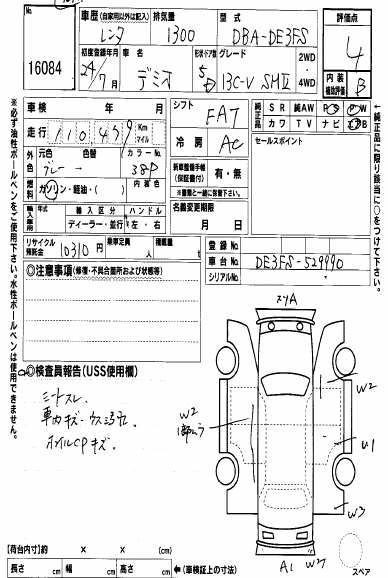 No.
16084
車歴 (自家用以外は記入)
レンタ
排気量
1300
型式
DBA-DE3FS
評価点
4
初度登録年月
24/7月
車名
デミオ
形状・ドア数
5D
グレード
13C-V SMⅡ
2WD
4WD
内装
補助評価
B
車検 年 月
走行
110,439
Km
マイル
外色
元色
色替
カラーNo.
グレー
38P
燃料
ガソリン・軽油・( )
内装色
輸入車
輸入区分
ハンドル
ディーラー・並行
左・右
リサイクル預託金
10310円
乗車定員
人
積載量
kg
シフト
FAT
冷房
AC
新車整備手帳
(保証書付)
有・無
※書類と一緒に保管下さい
名義変更期限
月 日
純正品
SR 純AW PS PW
カワ TV ナビ エアB
セールスポイント
登録No.
車台No.
DE3FS-529990
シリアルNo.
◎注意事項(修復・不具合箇所および状態等)
◎検査員報告(USS使用欄)
シートスレ
車内キズ・ウス汚れ
ホイルCPキズ
スリA
W2
W2
1部ムラ
U1
W3
A1 W2
スペア
【荷台内寸】約 × × (cm)
長さ cm 幅 cm 高さ cm
←(車検証上の寸法)
※必ず油性ボールペンをご使用下さい。水性ボールペンは使用できません。
※純正品に限り該当に○をつけて下さい。